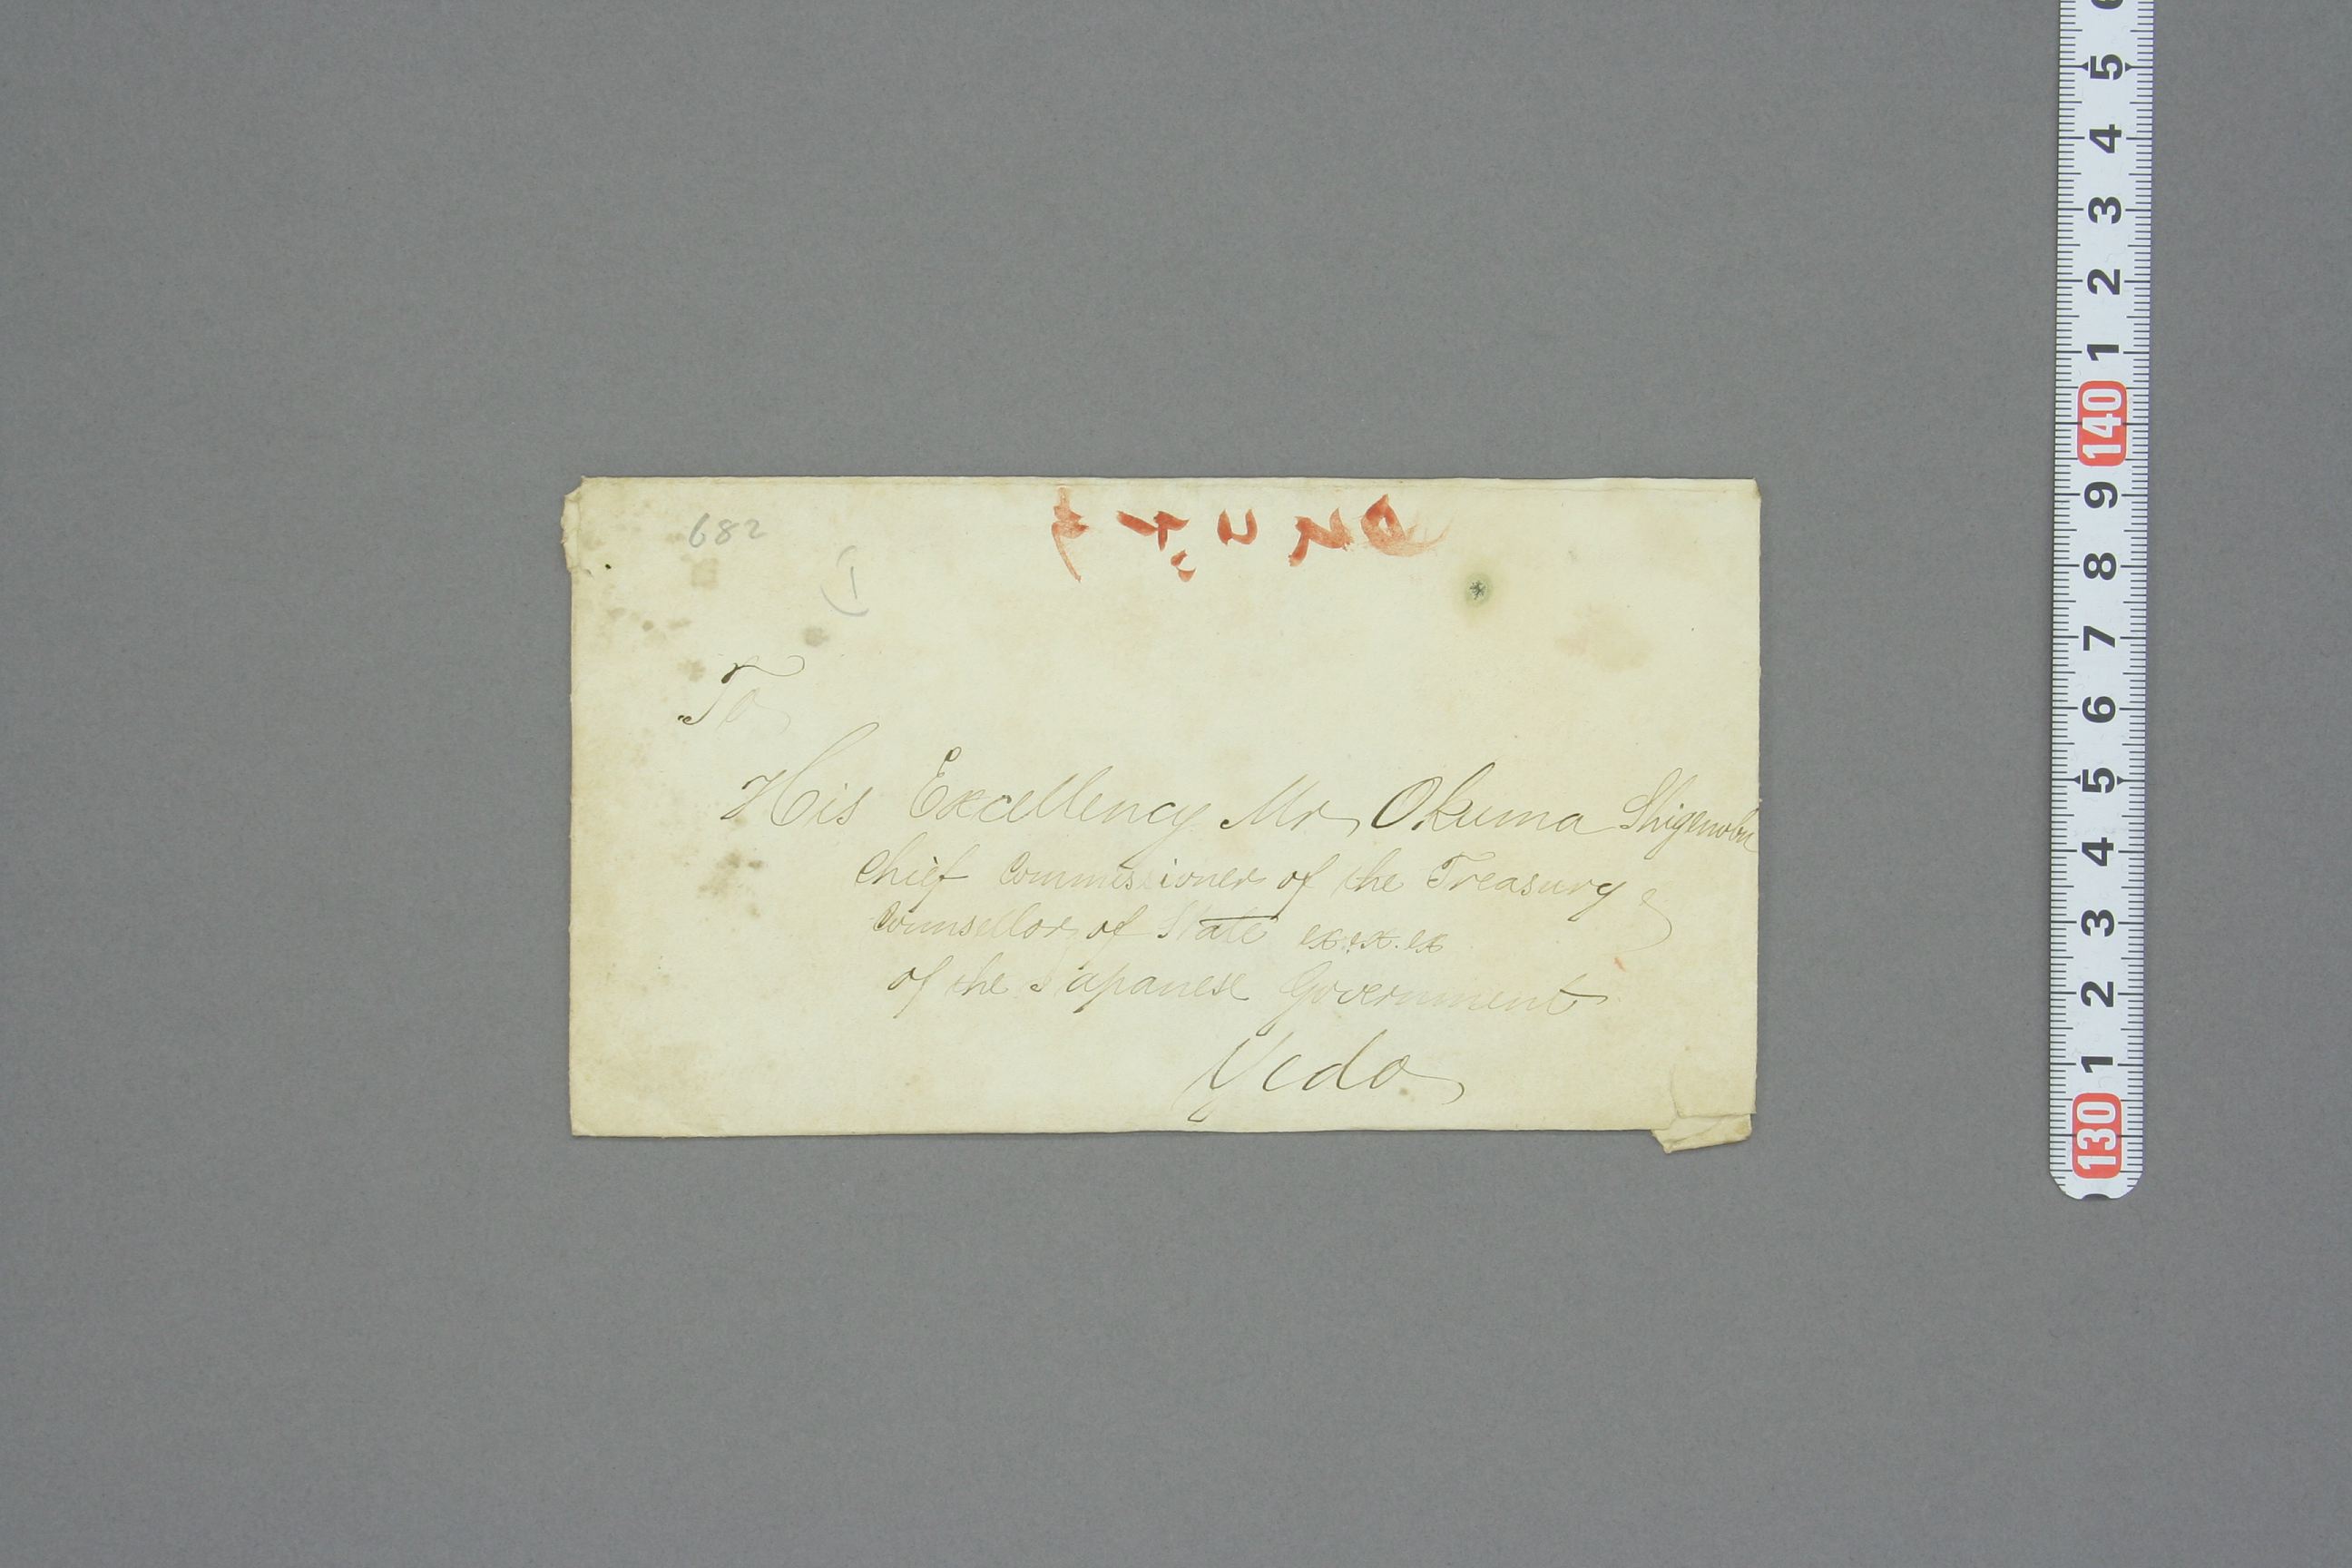 682
To
His Excellency Mr Okuma Shigenobu
Chief Commissioner of the Treasury
Counsellor of State ex.ex.ex
of the Japanese Government
Yedo
6
5
4
3
2
1
140
9
8
7
6
5
4
3
2
1
130